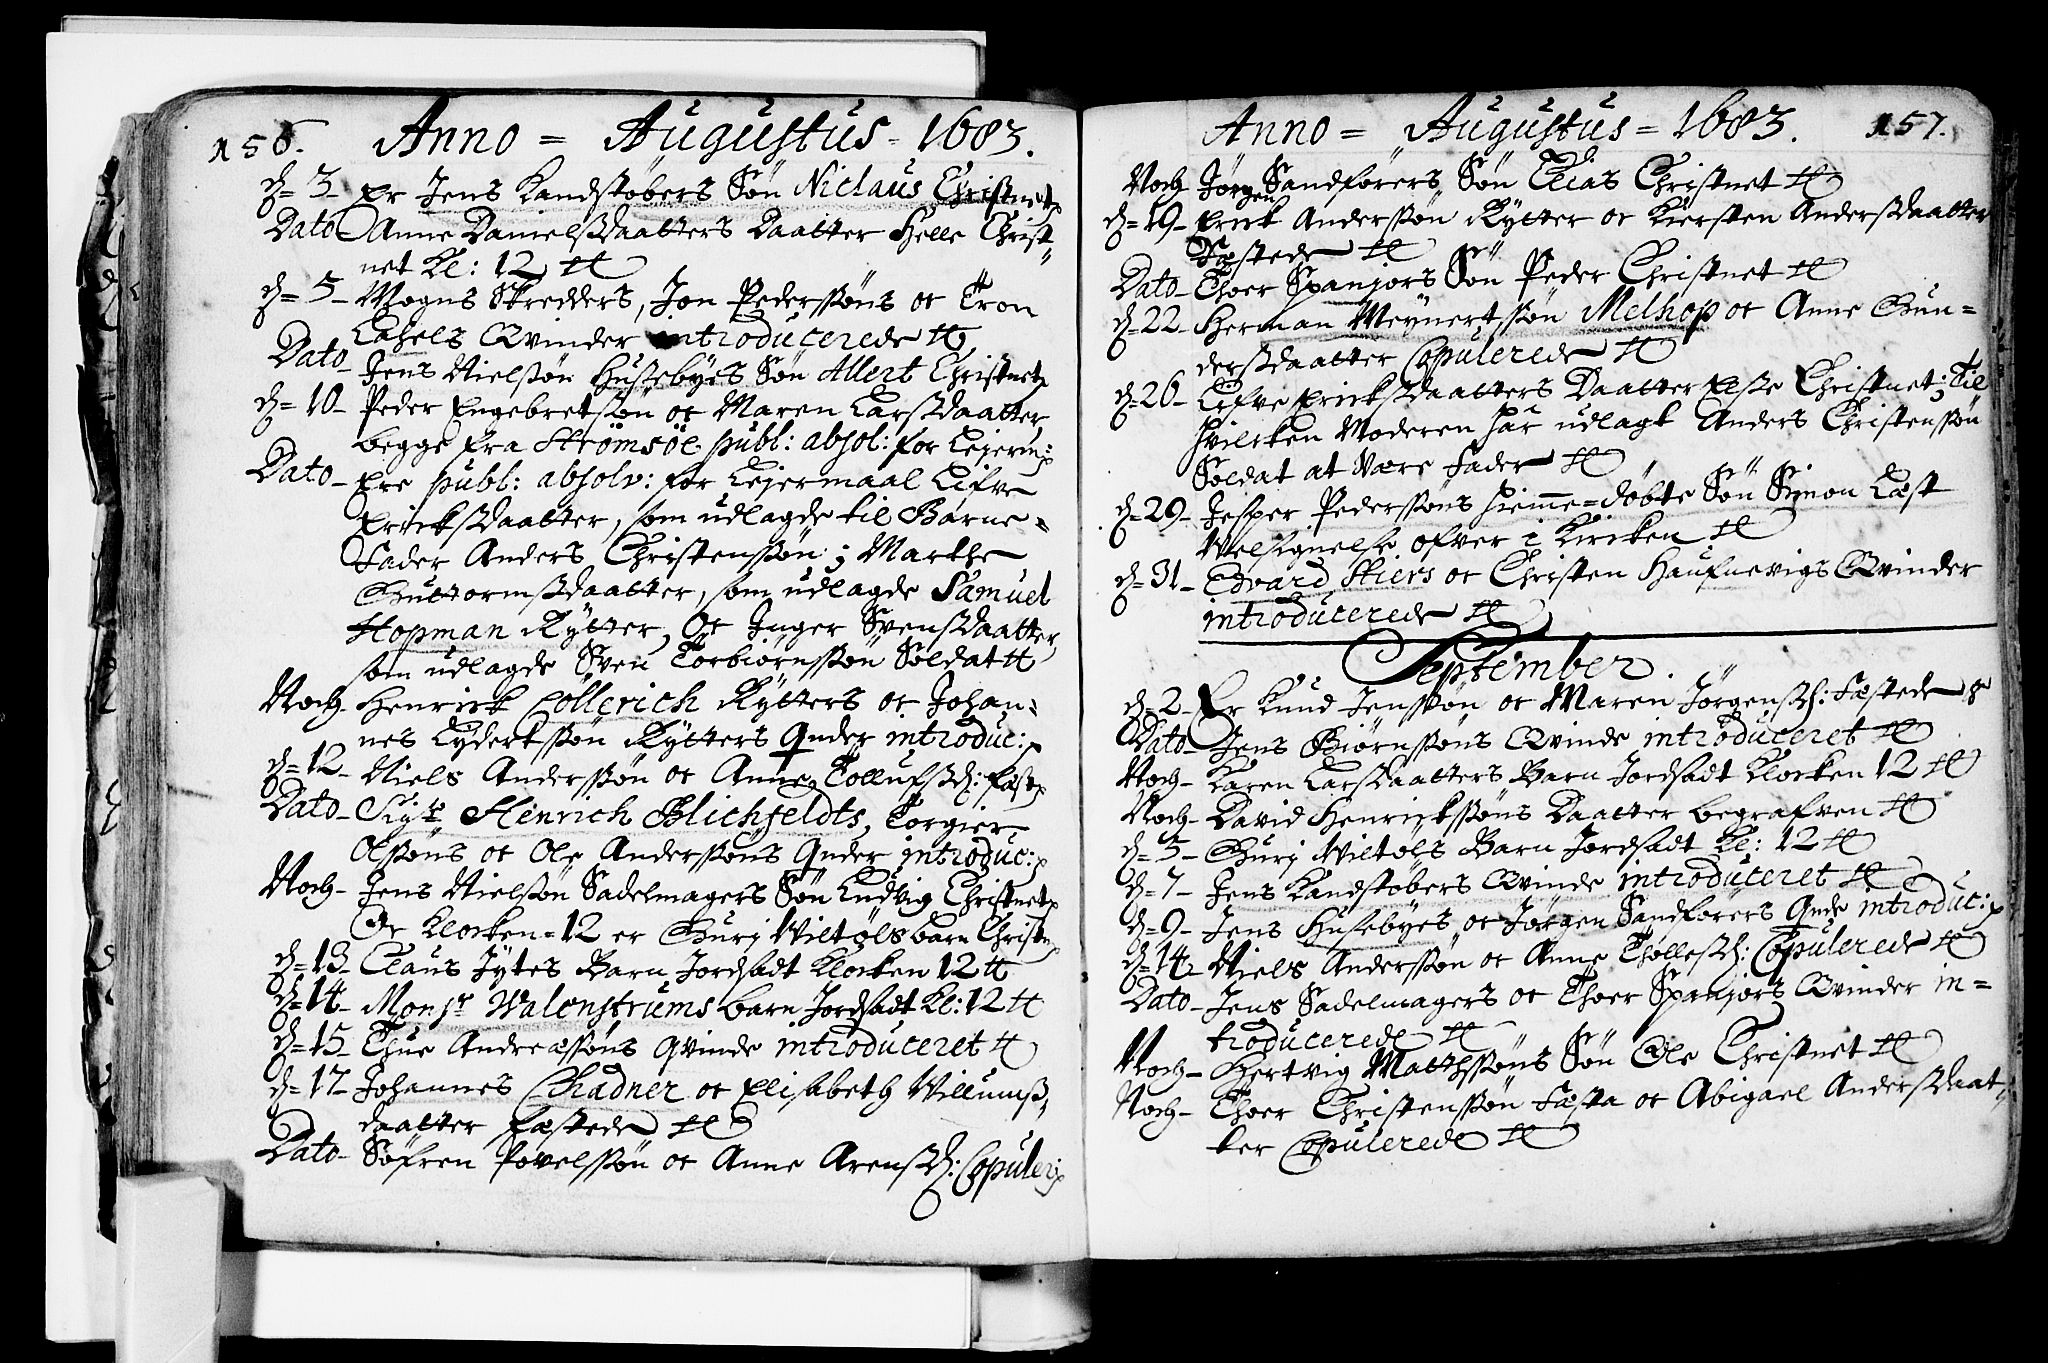 156. Anno = Augustus = 1683.
d= 3_ Er Jens Kandstøbers Søn Niclaus Christnet
Dato_ Anne Danielsdaatters Daatter Helle Christ=
net Kl: 12
d= 5_ Mogns Skredders, Jon Pederssøns oc Tron
Qvinder introducerede
Dato_ Jens Nielssøn Husebyes Søn Allert Christnet
d= 10_ Peder Engebretssøn oc Maren Larssdaatter
begge fra Strømsöe publ: absol: for Lejerm:
Dato_ Ere publ: absolv: for Lejermaal Lifve
Erichsdaatter, som udlagde til Barne=
Fader Anders Christenssøn; Marthe
Guttormsdaatter, som udlagde Samuel
Hopman Rytter, Oc Inger Svensdaatter,
som udlagde Sven Torbiørnssøn Soldat
Noch_ Henrich Collerich Rytters oc Johan=
nes Lydertssøn Rytters Qnder introduc:
d= 12_ Niels Anderssøn oc Anne Tollufsd: fæst
Dato_ Sigr Hinrich Blichfeldts, Torgier
Olssøns oc Ole Anderssøns Qnder introduc:
Noch_ Jens Nielssøn Sadelmagers Søn Ludvig Christnet
Oc Klocken=12 er Guri Wiltøls barn Christn
d= 13_ Claus Jytes Barn Jordsadt Klocken 12
d= 14_ Monsr Walenstrums barn Jordsadt Kl: 12
d= 15_ Thue Andreæssøns qvinde introduceret
d= 17_ Johannes Chadner oc Elisabeth Willums=
daatter fæstede
Dato_ Søfren Povelssøn oc Anne Arensd: Copuler:
Anno = Augustus = 1683. 157.
Noch Jørgen Sandførers Søn Elias Christnet
d= 19_ Erick Anderssøn Rytter oc Kiersten Andersdaatter
Fæstede
Dato_ Thoer Spanjors Søn Peder Christnet
d= 22_ Herman Meynertssøn Melhop oc Anne Gun=
dersdaatter Copulerede
d= 26_ Lifve Ericksdaatters Daatter Else Christnet; Til
hvilcken Moderen har udlagt Anders Christenssøn
Soldat at være Fader
d= 29_ Jesper Pederssøns hieme=døbte Søn Simon Læst
Velsignelse ofver i Kircken
d= 31_ Edvard Skiers oc Christen Haufnevigs Qvinder
introducerede
September.
d= 2_ Er Knud Jenssøn oc Maren Jørgensd: Fæstede
Dato_ Jens Biørnssøns Qvinde introduceret
Noch_ Karen Larsdaatters Barn Jordsadt Klocken 12
Noch_ David Henrickssøns Daatter begrafven
d= 5_ Guri Wiltøls Barn Jordsadt Kl: 12
d= 7_ Jens Kandstøbers Qvinde introduceret
d= 9_ Jens Husebyes oc Jørgen Sandførers Qnde introduc:
d= 14_ Niels Anderssøn oc Anne Tholles d: Copulerede
Dato_ Jens Sadelmagers oc Thoer Spanjors Qvinder in=
troducerede
Noch_ Hertvig Matthssøns Søn Ole Christnet
Noch_ Thoer Christenssøn Fasta oc Abigael Andersdaat=
ter Copulerede